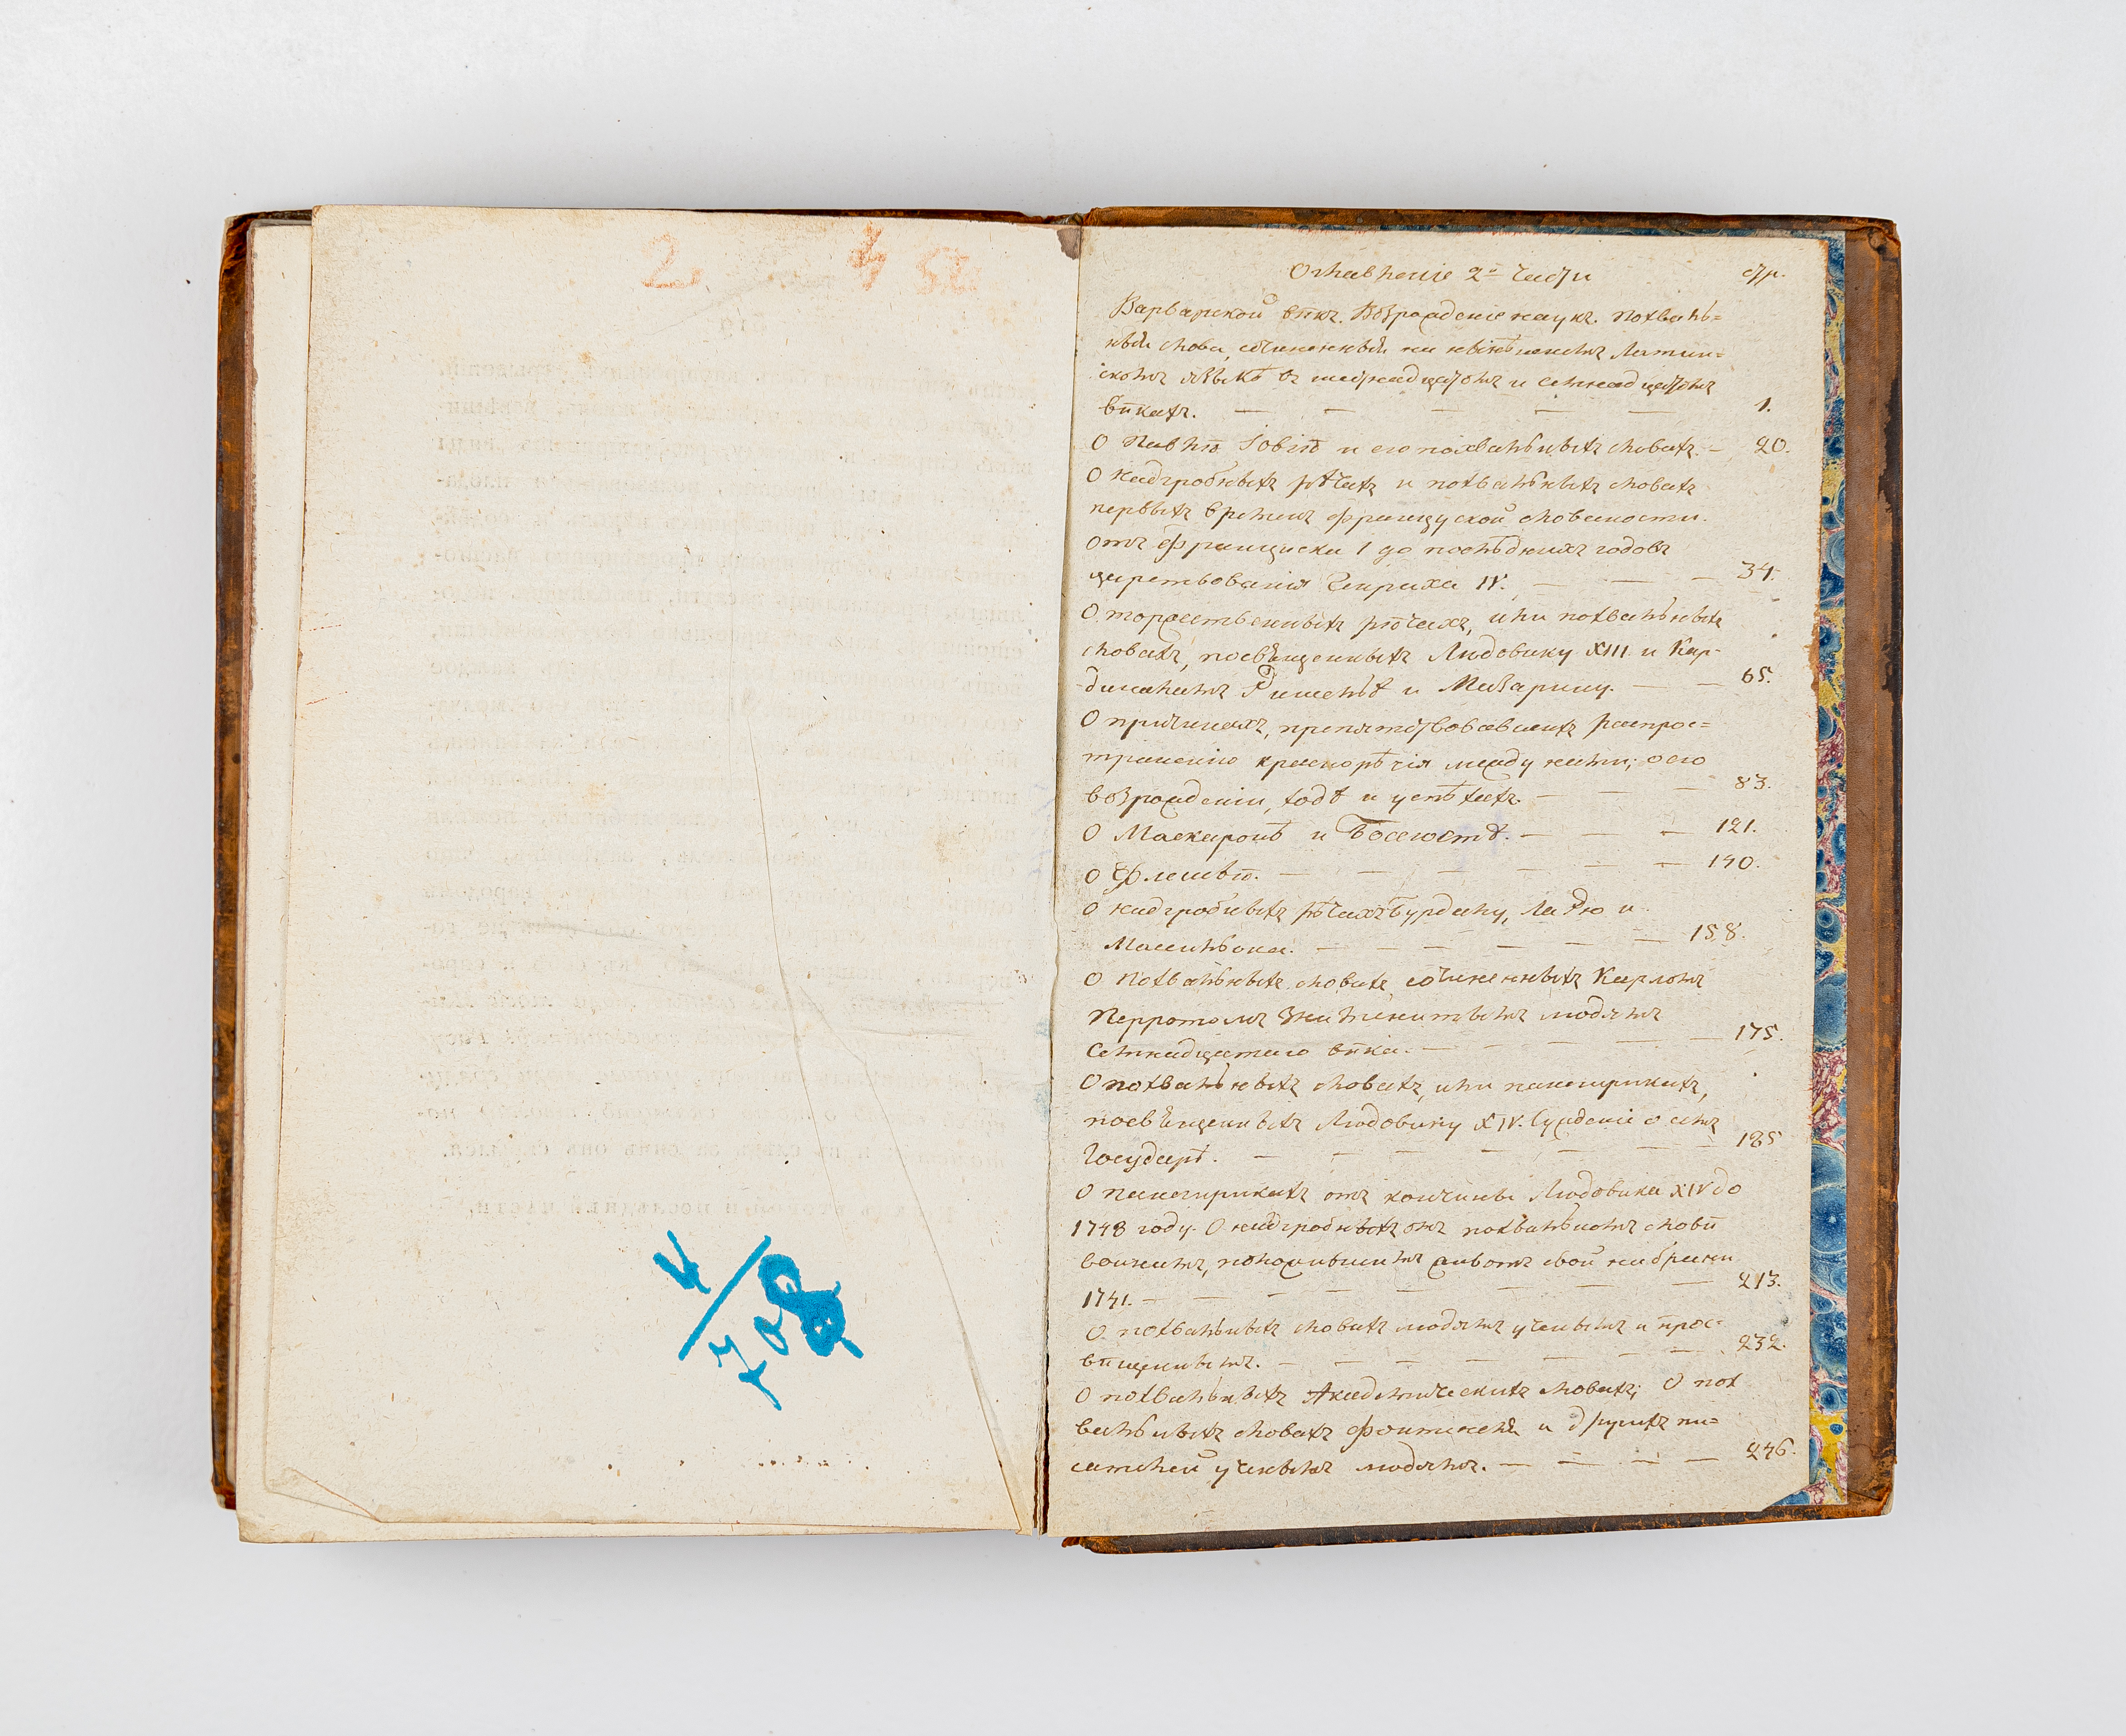 2. 4 52.
4/708
Оглавленіе 2й части стр.
Варварской вѣкъ. Возрожденіе наукъ. Похваль=
ныя слова, сочиненныя на нынѣшнемъ Латин=
скомъ языкѣ въ шестнадцатомъ и семнадцатомъ
вѣкахъ. — — — — — 1.
О Павлѣ Іовіѣ и его похвальныхъ словахъ. — 20.
О надгробныхъ рѣчахъ и похвальныхъ словахъ
первыхъ временъ французской словесности.
отъ Франциска I до послѣднихъ годовъ
царствованія Генриха IV. — — — 34.
О торжественныхъ рѣчахъ, или похвальныхъ
словахъ, посвященныхъ Людовику XIII. и Кар-
-диналамъ Ришелье и Мазарину. — — 65.
О причинахъ, препятствовавшихъ распрос=
траненію краснорѣчія между нами; о его
возрожденіи, ходѣ и успѣхахъ. — — — 83.
О Маскаронѣ и Боссюетѣ. — — — 121.
О Флешьѣ. — — — — — — 140.
О надгробныхъ рѣчахъ Бурдалу, Ла Рю и
Массильона. — — — — — — — 158.
О Похвальныхъ словахъ, сочиненныхъ Карломъ
Перротомъ Знаменитымъ людямъ
Семнадцатаго вѣка. — — — — — — 175.
О похвальныхъ словахъ, или панегирикахъ,
посвященныхъ Людовику XIV. Сужденіе о семъ
Государѣ. — — — — — — — 185
О панегирикахъ отъ кончины Людовика XIV до
1748 году. О надгробныхъ онъ похвальномъ словѣ
воинамъ, положившимъ животъ свой на брани
1741. — — — — — — — — 213.
О похвальныхъ словахъ людямъ ученымъ и прос=
вѣщеннымъ. — — — — — — — 232.
О похвальныхъ Академическихъ словахъ; О пох
вальныхъ словахъ Фонтенеля и другихъ пи=
сателей ученымъ людямъ. — — — — 246.